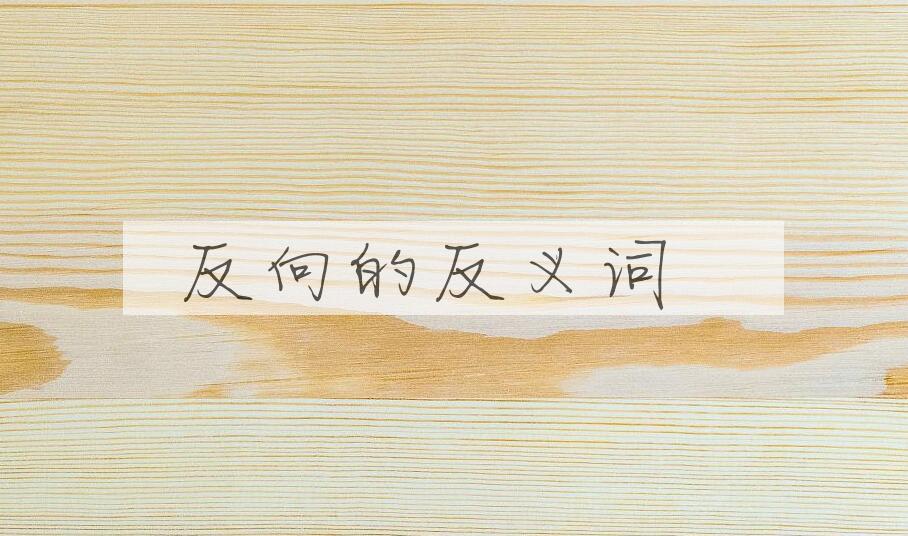 反向的反义词